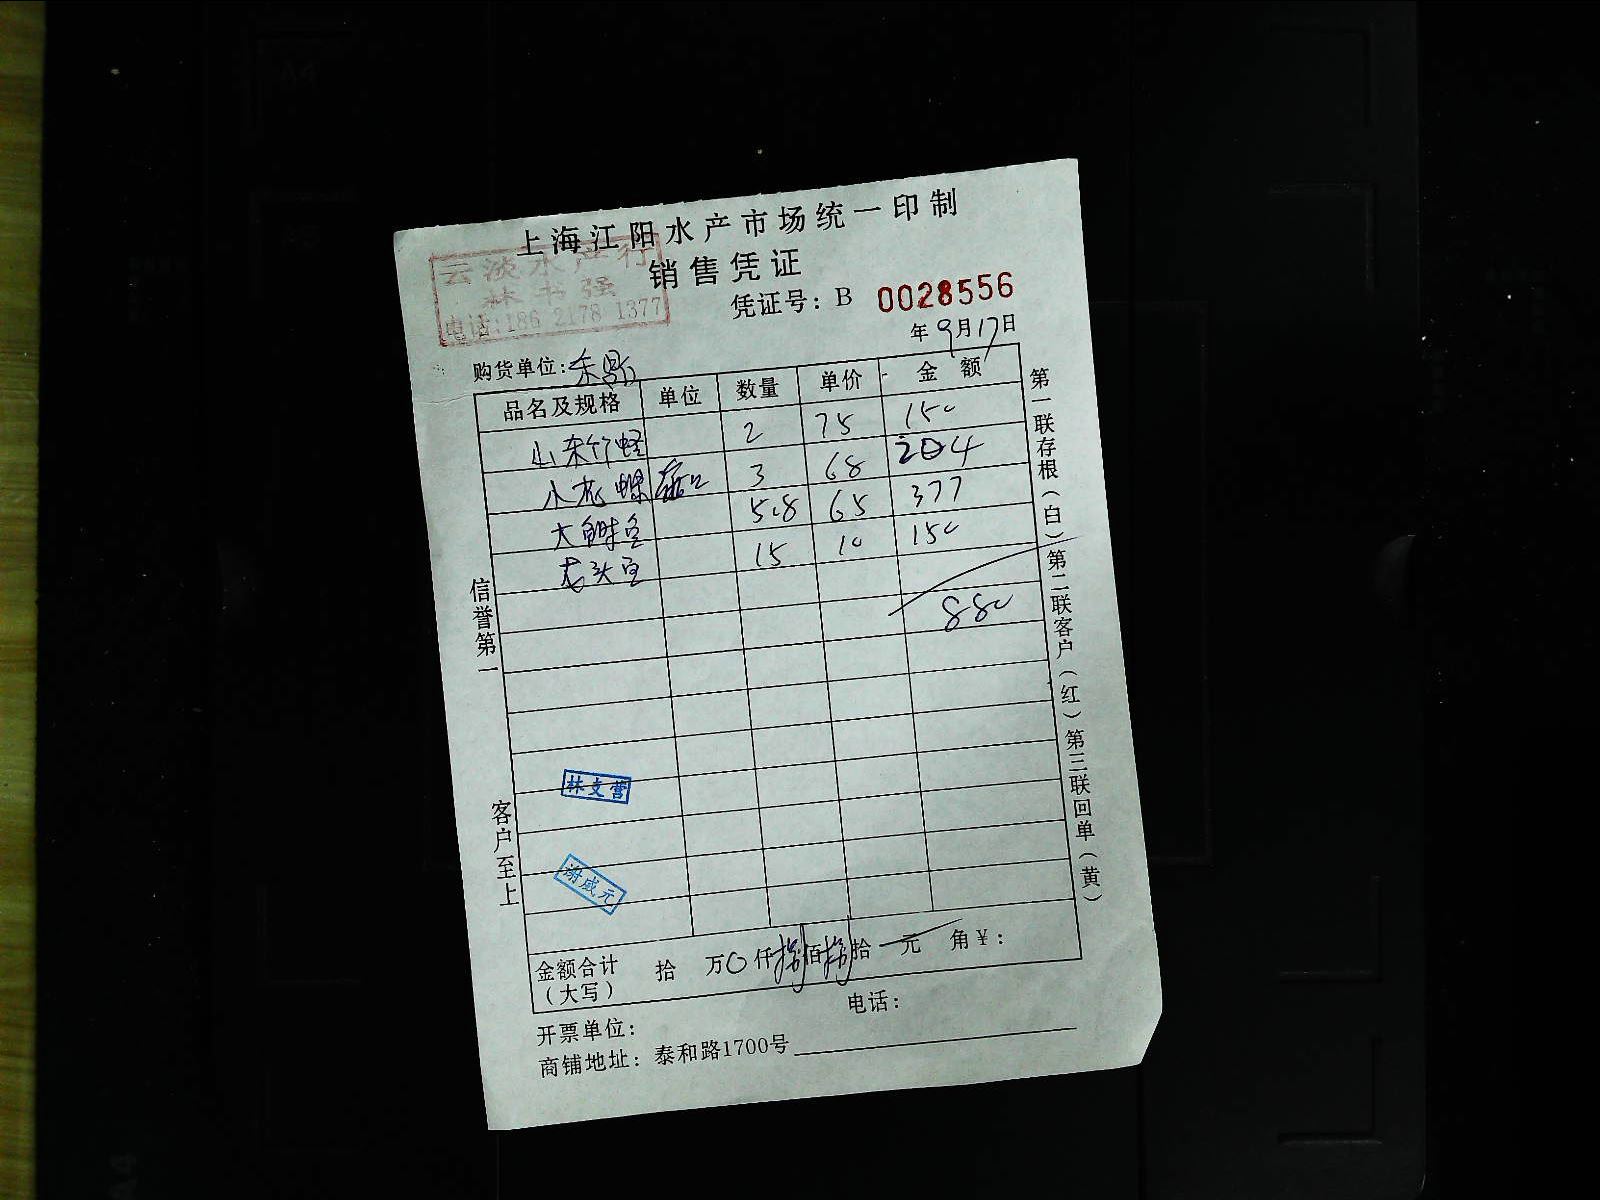 上海江阳水产市场统一印制
云淡水产行
林书强
电话:186 2178 1377
销售凭证
凭证号: B 0028556
年9月17日
购货单位:
品名及规格 单位 数量 单价 金额
山东竹蛏 2 75 150
小花螺 3 68 204
大鲜鱼 5.8 65 377
龙头鱼 15 10 150
880
信誉第一
客户至上
第一联存根(白)第二联客户(红)第三联回单(黄)
林支营
谢威元
金额合计(大写) 拾 万0仟捌佰捌拾一元 角¥:
开票单位: 电话:
商铺地址: 泰和路1700号